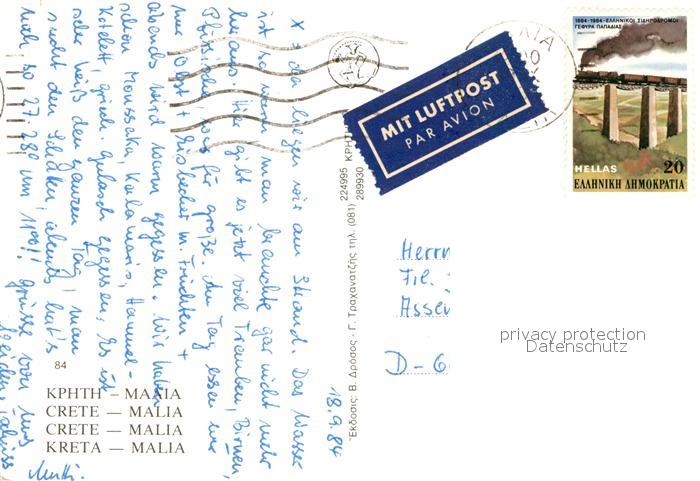 18.9.84
X = da liegen wir am Strand. Das Wasser
ist so warm, man brauchte gar nicht mehr
heraus. Hier gibt es jetzt viel Trauben, Birnen,
Pfirsiche, für große. Am Tag essen wir
nur Obst + Eisbecher m. Früchten +
abends wird warm gegessen. Wir haben
schon Moussaka, Kalamaris, Hammel-
Kotelett, griech. Gulasch gegessen. Es ist
sehr heiß den ganzen Tag, man
sucht den Schatten, abends hat's
noch so 27, 28° um 11°°!! Grüsse von uns
Mutti.
84
ΚΡΗΤΗ — ΜΑΛΙΑ
CRETE — MALIA
CRETE — MALIA
KRETA — MALIA
Έκδοσις: Β. Δρόσος - Γ. Τραχανατζής τηλ. (081) 224995 ΚΡΗΤΗ
289930
MIT LUFTPOST
PAR AVION
1884-1984 ΕΛΛΗΝΙΚΟΙ ΣΙΔΗΡΟΔΡΟΜΟΙ
ΓΕΦΥΡΑ ΠΑΠΑΔΙΑΣ
HELLAS 20
ΕΛΛΗΝΙΚΗ ΔΗΜΟΚΡΑΤΙΑ
Herrn
D-6
privacy protection
Datenschutz